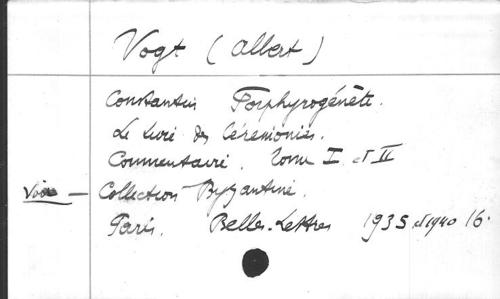 Vogt (Albert)
Constantin Porphyrogénète.
Le livre des Cérémonies.
Commentaire. Tome I et II
Voir — Collection Byzantine.
Paris. Belles-Lettres 1935 et 1940 16.